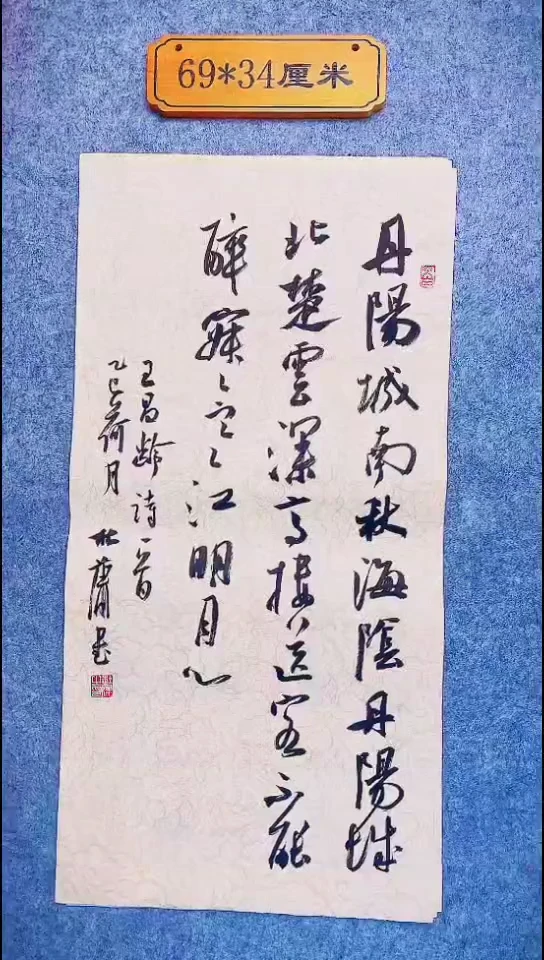 69*34厘米
丹陽城南秋海陰丹陽城
北楚雲深高樓送客不能
醉寂々寒江明月心
王昌龄詩一首
乙巳荷月 書